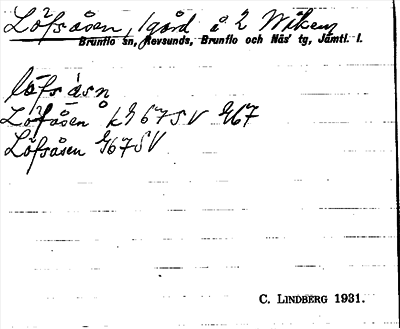 Löfsåsen, 1 gård å 2 Wiken
Brunflo sn, Revsunds, Brunflo och Näs' tg, Jämtl. l.
löfsåsn
Löfåsen k 67 SV 67
Löfsåsen 67 SV
C. LINDBERG 1931.